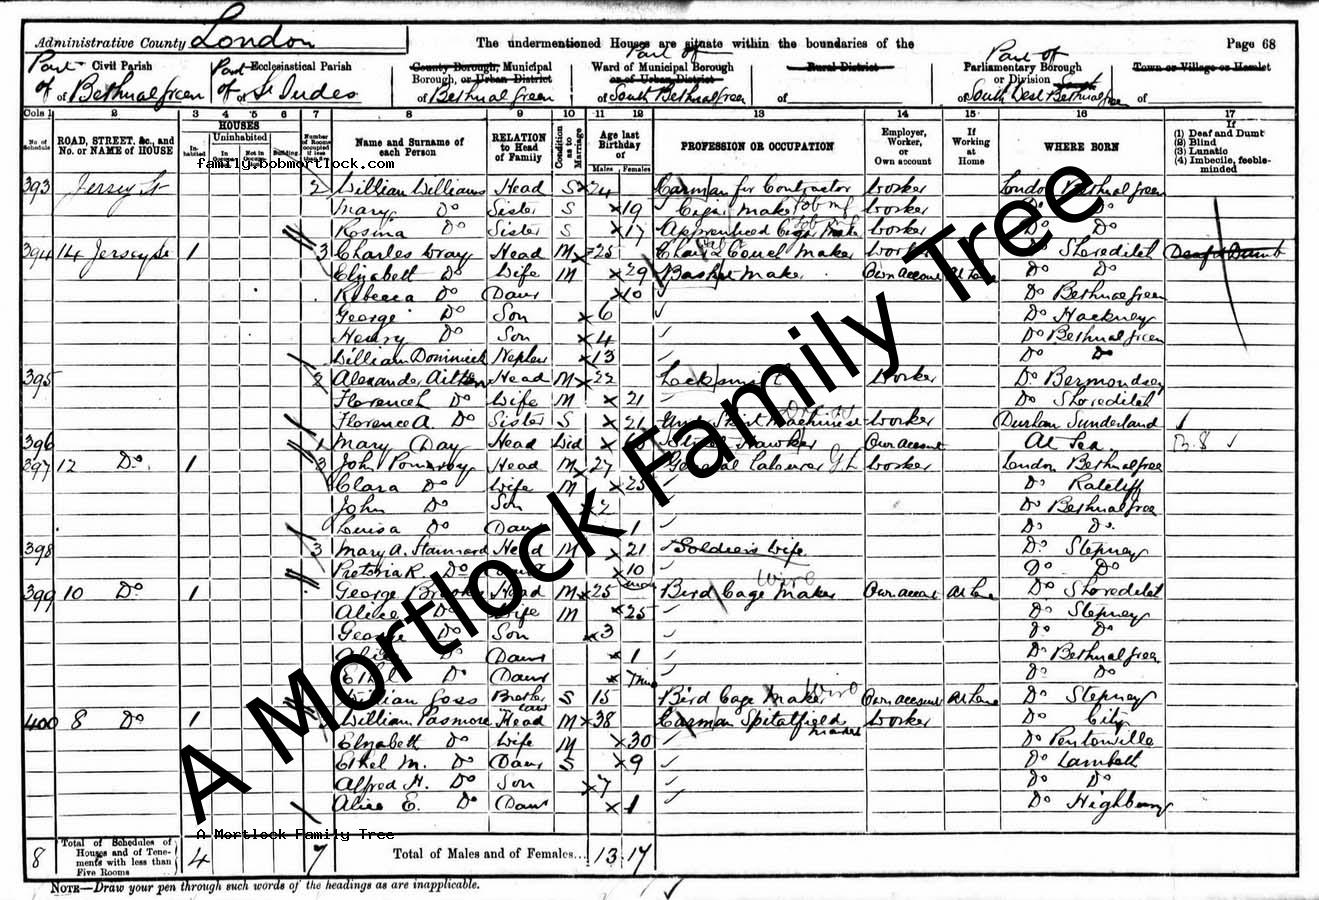 Administrative County London
The undermentioned Houses are situate within the boundaries of the
Page 68
Civil Parish
Part of of Bethnal Green
Ecclesiastical Parish
Part of of St Judes
County Borough, Municipal Borough, or Urban District
of Bethnal Green
Part of
Ward of Municipal Borough or of Urban District
of South Bethnal Green
Rural District
of
Part of
Parliamentary Borough or Division
of South West Bethnal Green
Town or Village or Hamlet
of
Cols 1 2 3 4 5 6 7 8 9 10 11 12 13 14 15 16 17
No. of Schedule
ROAD, STREET, &c., and No. or NAME of HOUSE
HOUSES
Inhabited
Uninhabited
Building
Name and Surname of each Person
RELATION to Head of Family
Condition as to Marriage
Age last Birthday of
Males Females
PROFESSION OR OCCUPATION
Employer, Worker, or Own account
If Working at Home
WHERE BORN
If (1) Deaf and Dumb (2) Blind (3) Lunatic (4) Imbecile, feeble-minded
family.bobmortlock.com
393 Jersey St 2 William Williams Head S 24 Carman for Contractor Worker London Bethnal Green
Mary Do Sister S 19 Cigar Maker Worker Do Do
Rosina Do Sister S 17 Apprenticed Cigar Maker Worker Do Do
394 14 Jersey St 1 3 Charles Gray Head M 25 Chair & Couch Maker Worker Do Shoreditch Deaf & Dumb
Elizabeth Do Wife M 29 Basket Maker Own Account At Home Do Do
Rebecca Do Daur 10 Do Bethnal Green
George Do Son 6 Do Hackney
Henry Do Son 4 Do Bethnal Green
William Dominick Nephew 13 Do Do
395 2 Alexander Aitken Head M 22 Locksmith Worker Do Bermondsey
Florence Do Wife M 21 Do Shoreditch
Florence A. Do Sister S 21 Machinist Worker Durham Sunderland
396 1 Mary Day Head Wid Hawker Own Account At Sea
397 12 Do 1 3 John Pomeroy Head M 27 General Labourer Worker London Bethnal Green
Clara Do Wife M 25 Do Ratcliff
John Do Son 2 Do Bethnal Green
Louisa Do Daur 1 Do Do
398 3 Mary A. Stannard Head M 21 Soldiers Wife Do Stepney
Pretoria R. Do 10 mos Do Do
399 10 Do 1 George Brooks Head M 25 Bird Cage Maker Wire Own account At Home Do Shoreditch
Alice Do Wife M 25 Do Stepney
George Do Son 3 Do Do
Alice Do Daur 1 Do Bethnal Green
Ethel Do Daur Do Do
William Goss Brother in law S 15 Bird Cage Maker Wire Own account At Home Do Stepney
400 8 Do 1 William Pasmore Head M 38 Carman Spitalfield Market Worker Do City
Elizabeth Do Wife M 30 Do Pentonville
Ethel M. Do Daur S 9 Do Lambeth
Alfred H. Do Son 7 Do Do
Alice E. Do Daur 1 Do Highbury
A Mortlock Family Tree
A Mortlock Family Tree
8 Total of Schedules of Houses and of Tenements with less than Five Rooms 4 7 Total of Males and of Females... 13 17
NOTE—Draw your pen through such words of the headings as are inapplicable.